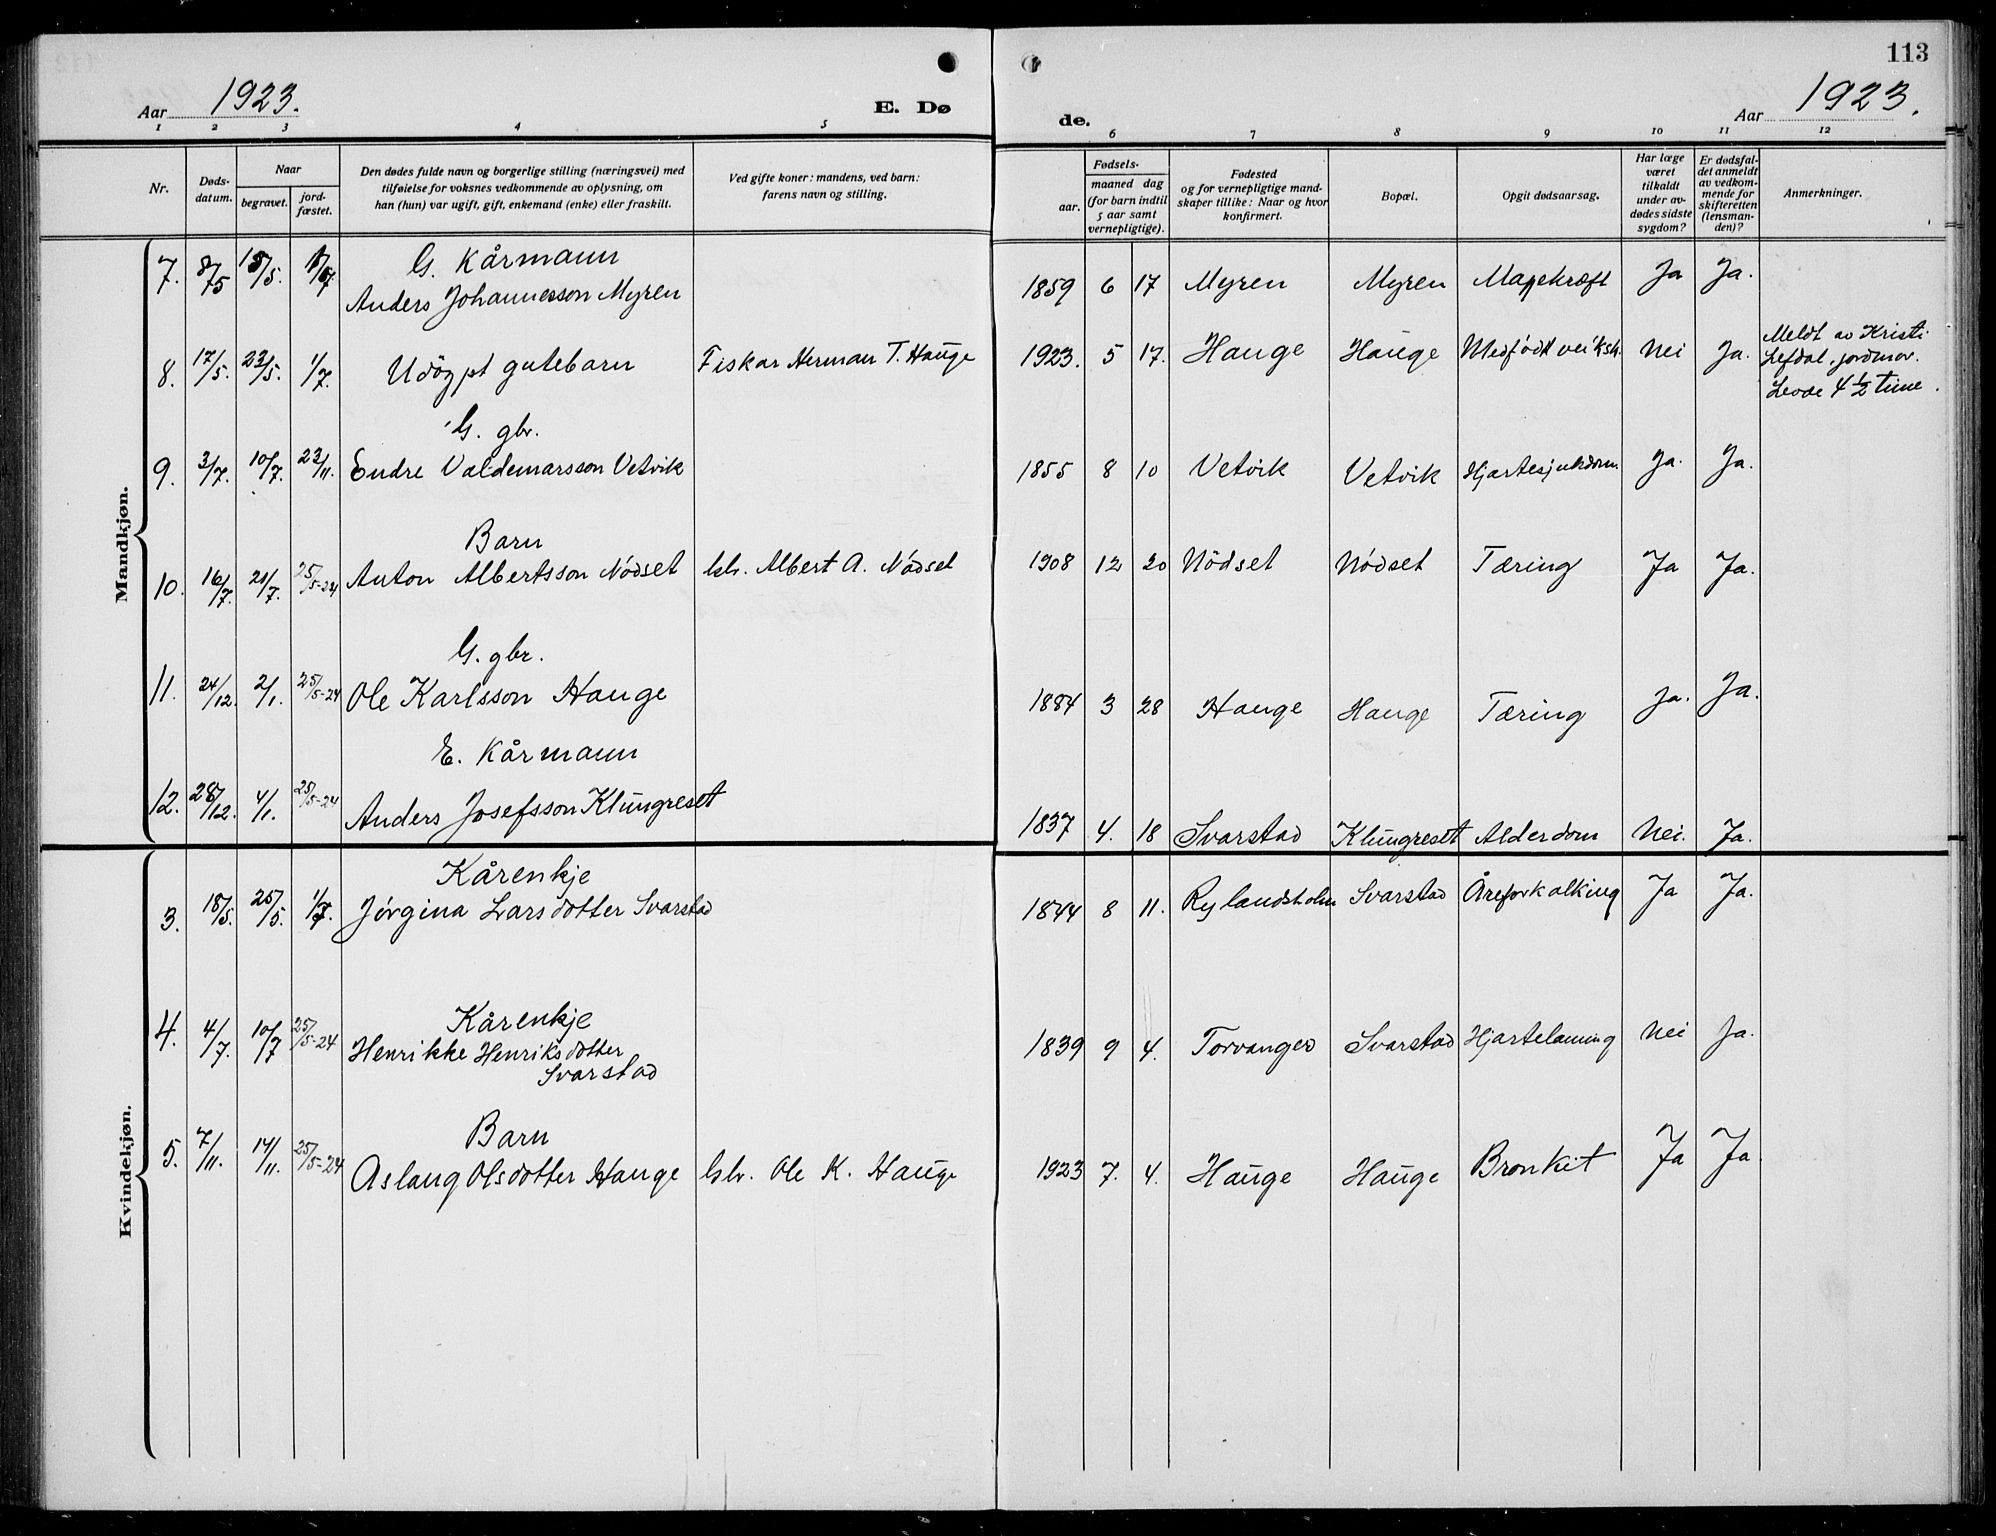 113
Aar 1923.
E. Dø
de.
Aar 1923.
1 2 3 4 5 6 7 8 9 10 11 12
Nr.
Døds-
datum.
Naar
begravet.
jord-
fæstet.
Den dødes fulde navn og borgerlige stilling (næringsvei) med
tilføielse for voksnes vedkommende av oplysning, om
han (hun) var ugift, gift, enkemand (enke) eller fraskilt.
Ved gifte koner: mandens, ved barn:
farens navn og stilling.
Fødsels-
aar.
maaned dag
(for barn indtil
5 aar samt
vernepligtige).
Fødested
og for vernepligtige mand-
skaper tillike: Naar og hvor
konfirmert.
Bopæl.
Opgit dødsaarsag.
Har læge
været
tilkaldt
under av-
dødes sidste
sygdom?
Er dødsfal-
det anmeldt
av vedkom-
mende for
skifteretten
(lensman-
den)?
Anmerkninger.
Mandkjøn.
G. Kårmann
7. 8/5 /5. Anders Johannesson Myren 1859 6 17 Myren Myren Magekræft Ja Ja.
8. 17/5. 23/5. 1/7. Udøypt gutebarn Fiskar Herman T. Hauge 1923. 5 17. Hauge Hauge Medfødt veiksk. Nei Ja. Meldt av Kristi
Lefdal, jordmor.
Levde 4 ½ time.
G. gbr.
9. 3/7. 10/7. 23/11. Endre Valdemarsson Vetvik 1855 8 10 Vetvik Vetvik Hjartesjukdom Ja. Ja.
Barn
10. 16/7. 21/7. 25/5-24 Anton Albertsson Nödset Gbr. Albert A. Nödset 1908 12 20 Nödset Nödset Tæring Ja Ja.
G. gbr.
11. 24/12. 2/1. 25/5-24 Ole Karlsson Hauge 1884 3 28 Hauge Hauge Tæring Ja. Ja.
E. Kårmann
12. 28/12. 4/1. 25/5-24 Anders Josefsson Klungreset 1837 4. 18 Svarstad Klungreset Alderdom Nei. Ja.
Kvindekjøn.
Kårenkje
3. 18/5. 25/5. 1/7. Jörgina Larsdotter Svarstad 1844 8 11. Rylandsholm Svarstad Åreforkalking Ja Ja.
Kårenkje
4. 4/7. 10/7 25/5-24 Henrikke Henriksdotter
Svarstad 1839 9 4. Torvanger Svarstad Hjartelaming Nei Ja.
Barn
5. 7/11. 14/11. 25/5-24 Aslaug Olsdotter Hauge Gbr. Ole K. Hauge 1923 7. 4. Hauge Hauge Bronkit Ja Ja